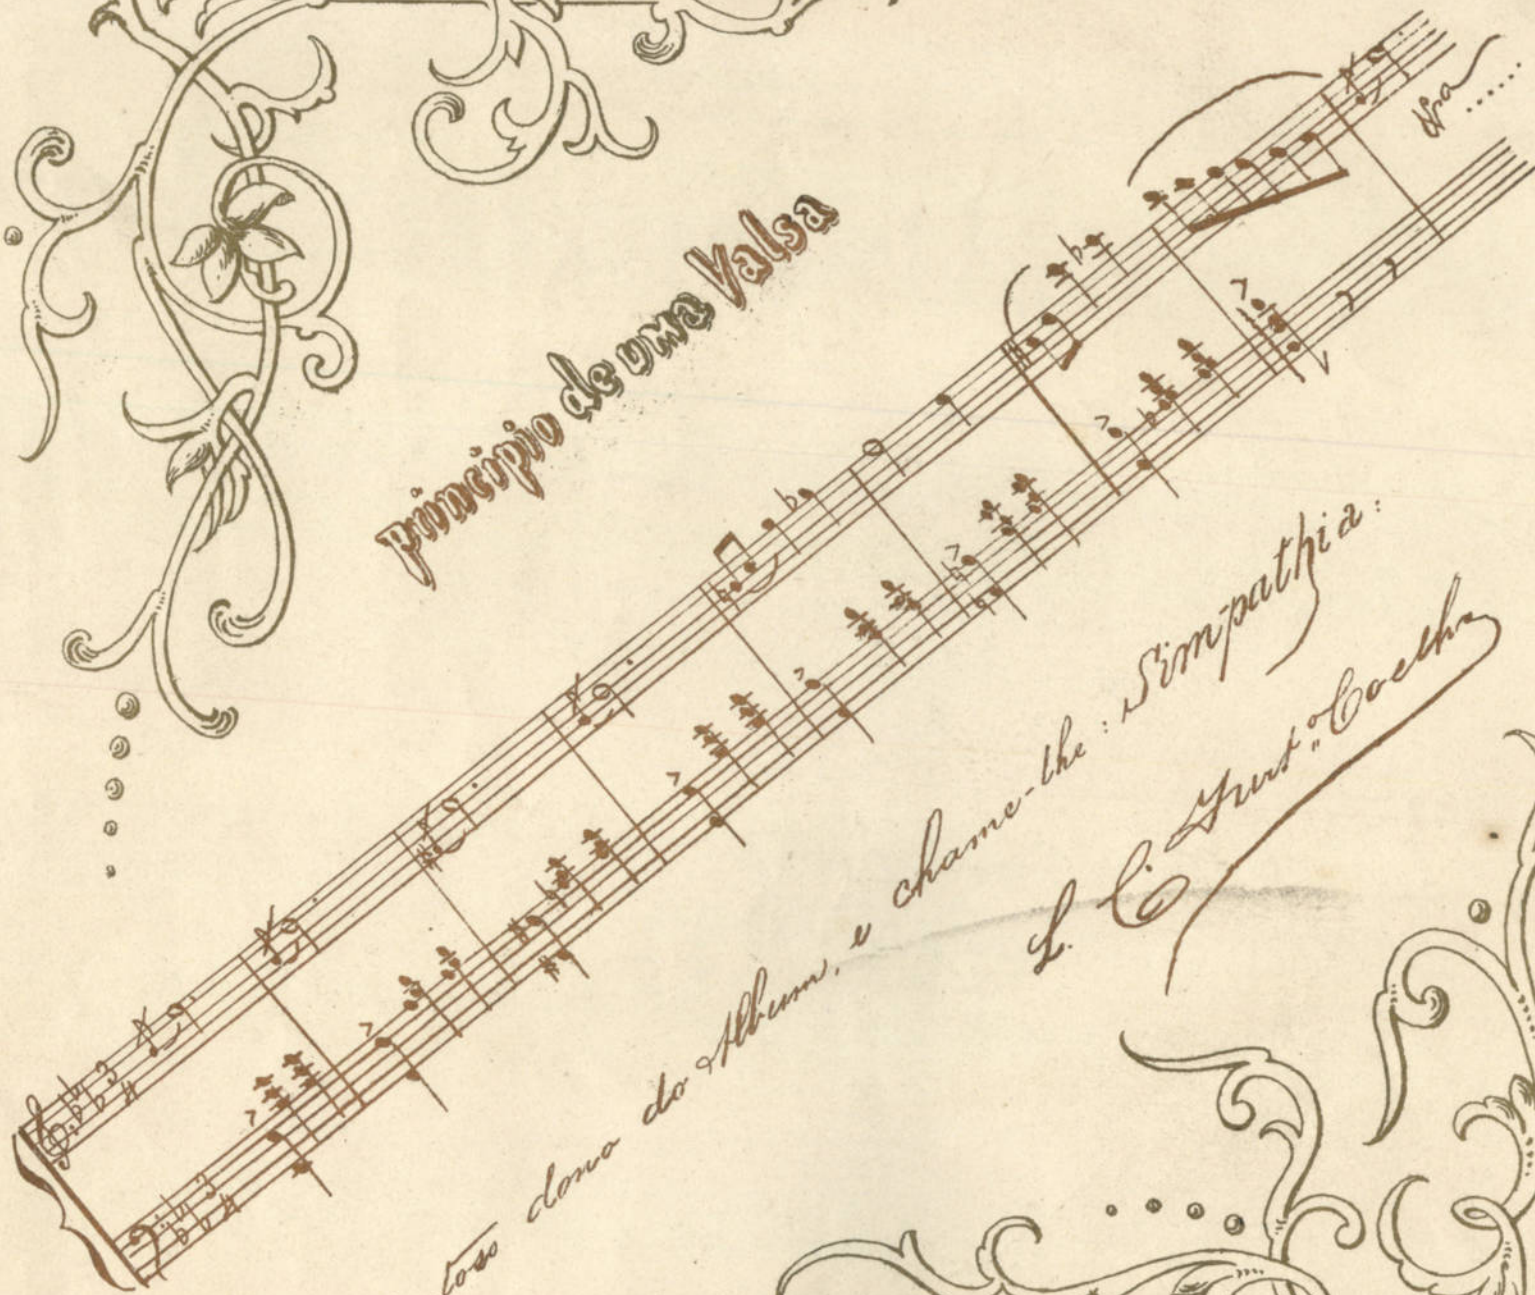 principio de uma Valsa
3
4
3
4
dono do Album, e chame-lhe: Simpathia:
L. C. Furt.º Coelho